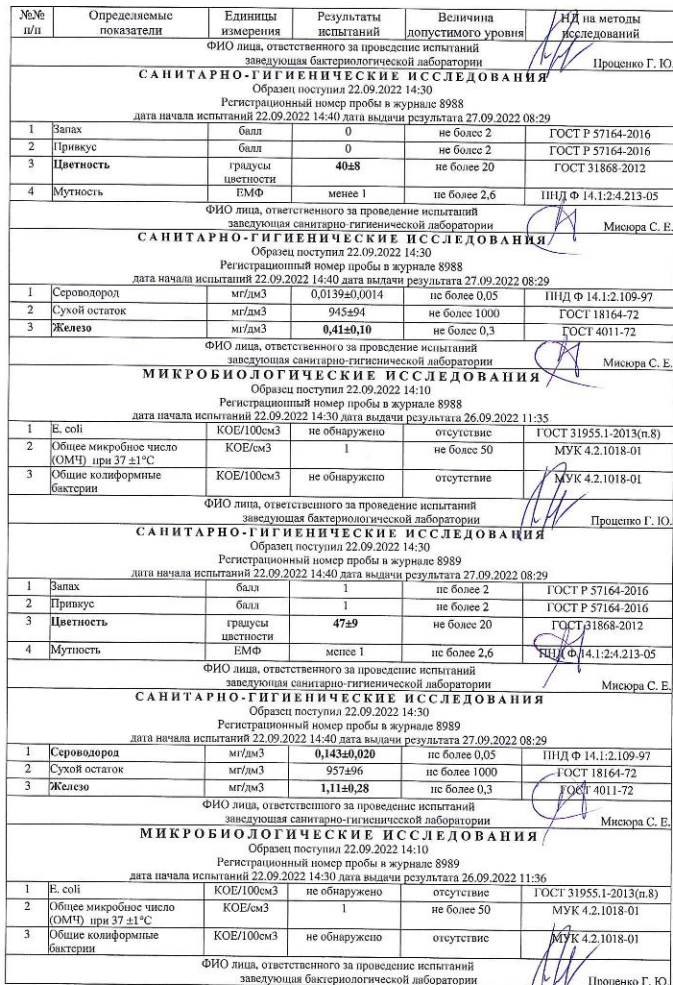 №№ п/п Определяемые показатели Единицы измерения Результаты испытаний Величина допустимого уровня НД на методы исследований
ФИО лица, ответственного за проведение испытаний
заведующая бактериологической лаборатории Проценко Г. Ю.
САНИТАРНО-ГИГИЕНИЧЕСКИЕ ИССЛЕДОВАНИЯ
Образец поступил 22.09.2022 14:30
Регистрационный номер пробы в журнале 8988
дата начала испытаний 22.09.2022 14:40 дата выдачи результата 27.09.2022 08:29
1 Запах балл 0 не более 2 ГОСТ Р 57164-2016
2 Привкус балл 0 не более 2 ГОСТ Р 57164-2016
3 Цветность градусы цветности 40±8 не более 20 ГОСТ 31868-2012
4 Мутность ЕМФ менее 1 не более 2,6 ПНД Ф 14.1:2:4.213-05
ФИО лица, ответственного за проведение испытаний
заведующая санитарно-гигиенической лаборатории Мисюра С. Е.
САНИТАРНО-ГИГИЕНИЧЕСКИЕ ИССЛЕДОВАНИЯ
Образец поступил 22.09.2022 14:30
Регистрационный номер пробы в журнале 8988
дата начала испытаний 22.09.2022 14:40 дата выдачи результата 27.09.2022 08:29
1 Сероводород мг/дм3 0,0139±0,0014 не более 0,05 ПНД Ф 14.1:2.109-97
2 Сухой остаток мг/дм3 945±94 не более 1000 ГОСТ 18164-72
3 Железо мг/дм3 0,41±0,10 не более 0,3 ГОСТ 4011-72
ФИО лица, ответственного за проведение испытаний
заведующая санитарно-гигиенической лаборатории Мисюра С. Е.
МИКРОБИОЛОГИЧЕСКИЕ ИССЛЕДОВАНИЯ
Образец поступил 22.09.2022 14:10
Регистрационный номер пробы в журнале 8988
дата начала испытаний 22.09.2022 14:30 дата выдачи результата 26.09.2022 11:35
1 E. coli КОЕ/100см3 не обнаружено отсутствие ГОСТ 31955.1-2013(п.8)
2 Общее микробное число (ОМЧ) при 37 ±1°С КОЕ/см3 1 не более 50 МУК 4.2.1018-01
3 Общие колиформные бактерии КОЕ/100см3 не обнаружено отсутствие МУК 4.2.1018-01
ФИО лица, ответственного за проведение испытаний
заведующая бактериологической лаборатории Проценко Г. Ю.
САНИТАРНО-ГИГИЕНИЧЕСКИЕ ИССЛЕДОВАНИЯ
Образец поступил 22.09.2022 14:30
Регистрационный номер пробы в журнале 8989
дата начала испытаний 22.09.2022 14:40 дата выдачи результата 27.09.2022 08:29
1 Запах балл 1 не более 2 ГОСТ Р 57164-2016
2 Привкус балл 1 не более 2 ГОСТ Р 57164-2016
3 Цветность градусы цветности 47±9 не более 20 ГОСТ 31868-2012
4 Мутность ЕМФ менее 1 не более 2,6 ПНД Ф 14.1:2:4.213-05
ФИО лица, ответственного за проведение испытаний
заведующая санитарно-гигиенической лаборатории Мисюра С. Е.
САНИТАРНО-ГИГИЕНИЧЕСКИЕ ИССЛЕДОВАНИЯ
Образец поступил 22.09.2022 14:30
Регистрационный номер пробы в журнале 8989
дата начала испытаний 22.09.2022 14:40 дата выдачи результата 27.09.2022 08:29
1 Сероводород мг/дм3 0,143±0,020 не более 0,05 ПНД Ф 14.1:2.109-97
2 Сухой остаток мг/дм3 957±96 не более 1000 ГОСТ 18164-72
3 Железо мг/дм3 1,11±0,28 не более 0,3 ГОСТ 4011-72
ФИО лица, ответственного за проведение испытаний
заведующая санитарно-гигиенической лаборатории Мисюра С. Е.
МИКРОБИОЛОГИЧЕСКИЕ ИССЛЕДОВАНИЯ
Образец поступил 22.09.2022 14:10
Регистрационный номер пробы в журнале 8989
дата начала испытаний 22.09.2022 14:30 дата выдачи результата 26.09.2022 11:36
1 E. coli КОЕ/100см3 не обнаружено отсутствие ГОСТ 31955.1-2013(п.8)
2 Общее микробное число (ОМЧ) при 37 ±1°С КОЕ/см3 1 не более 50 МУК 4.2.1018-01
3 Общие колиформные бактерии КОЕ/100см3 не обнаружено отсутствие МУК 4.2.1018-01
ФИО лица, ответственного за проведение испытаний
заведующая бактериологической лаборатории Проценко Г. Ю.